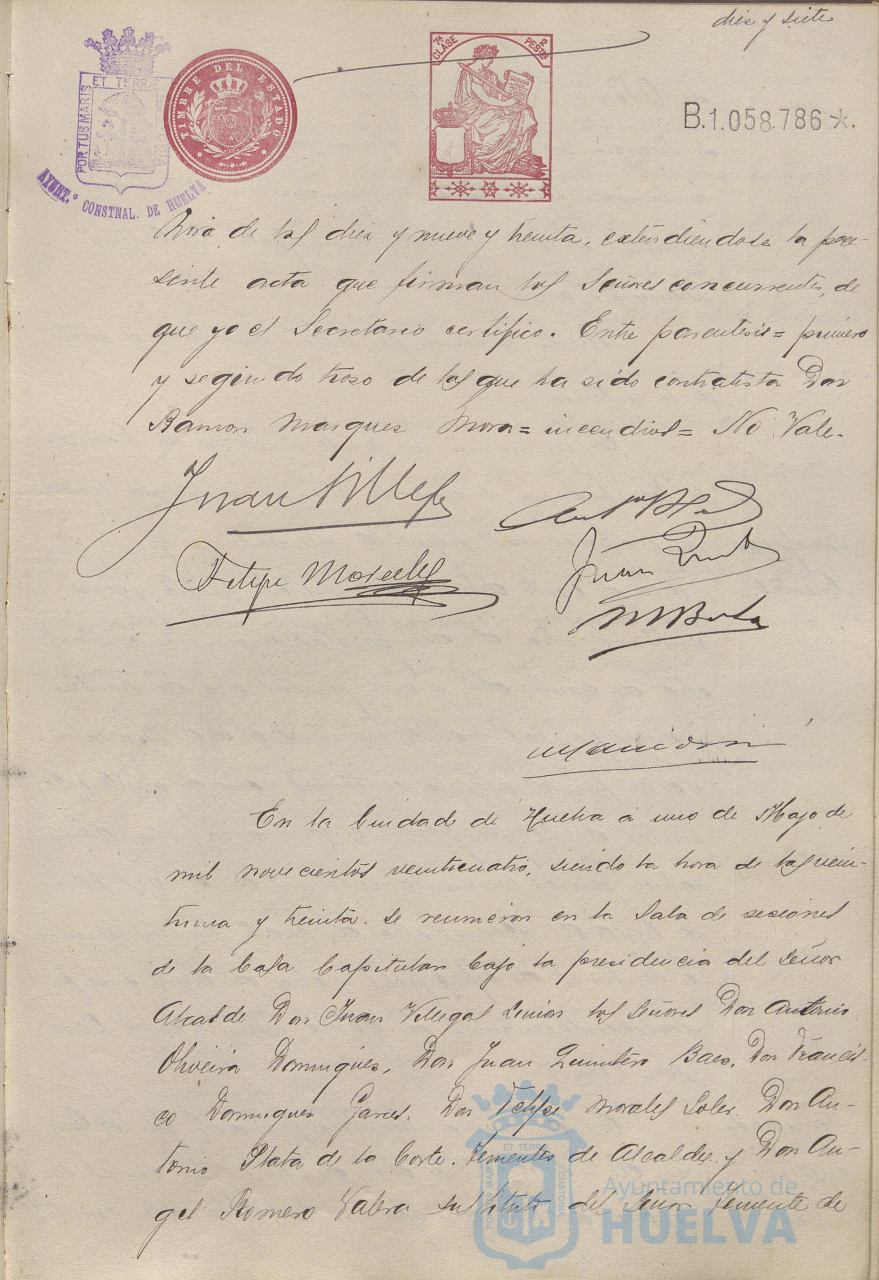 diez y siete
POR TUS MARIS ET TERRÆ CUSTODIA
AYUNT.º CONSTNAL. DE HUELVA
TIMBRE DEL ESTADO
7ª CLASE
2 PESTS
B.1.058.786 *.
hora de las diez y nueve y treinta, extendiendose la pre-
sente acta que firman los Señores concurrentes, de
que yo el Secretario certifico. Entre parentesis= primero
y segundo trozo de los que ha sido contratista Don
Ramon Marquez Mora= incendios= No Vale.
Juan Villegas
Felipe Morales
Juan Quintero
En la Ciudad de Huelva á uno de Mayo de
mil novecientos veinticuatro, siendo la hora de las vein-
tiuna y treinta, se reunieron en la Sala de sesiones
de la Casa Capitular bajo la presidencia del Señor
Alcalde Don Juan Villegas los Señores Don Antonio
Oliveira Dominguez, Don Juan Quintero Baez, Don Francis-
co Dominguez Garces, Don Felipe Morales Soler, Don An-
tonio Plata de la Corte, Tenientes de Alcalde, y Don An-
gel Romero Valera sustituto del Señor Teniente de
Ayuntamiento de
HUELVA